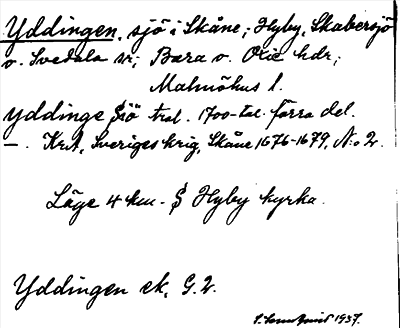 Yddingen, sjö i Skåne; Hyby, Skabersjö
o. Svedala sr; Bara o. Oxie hdr;
Malmöhus l.
Yddinge Siö trol. 1700-tal. förra del.
—. KrA, Sveriges krig, Skåne 1676-1679, N:o 2.
Läge 4 km. S Hyby kyrka.
Yddingen ek. G. 2.
1937.